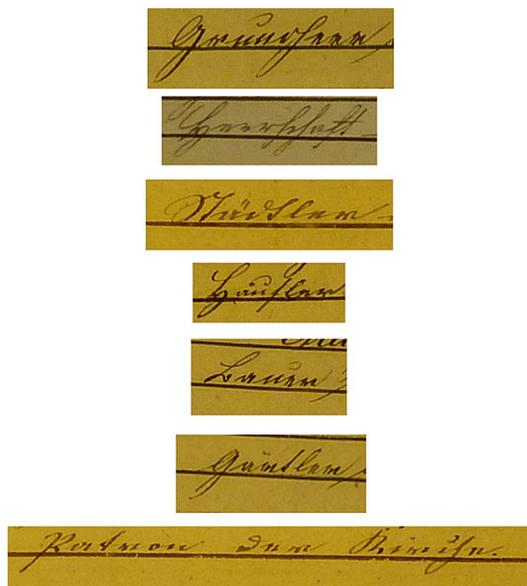 Grundherr
Herrschaft
Städtler
Häusler
Bauer
Gärtler
Patron der Kirche.